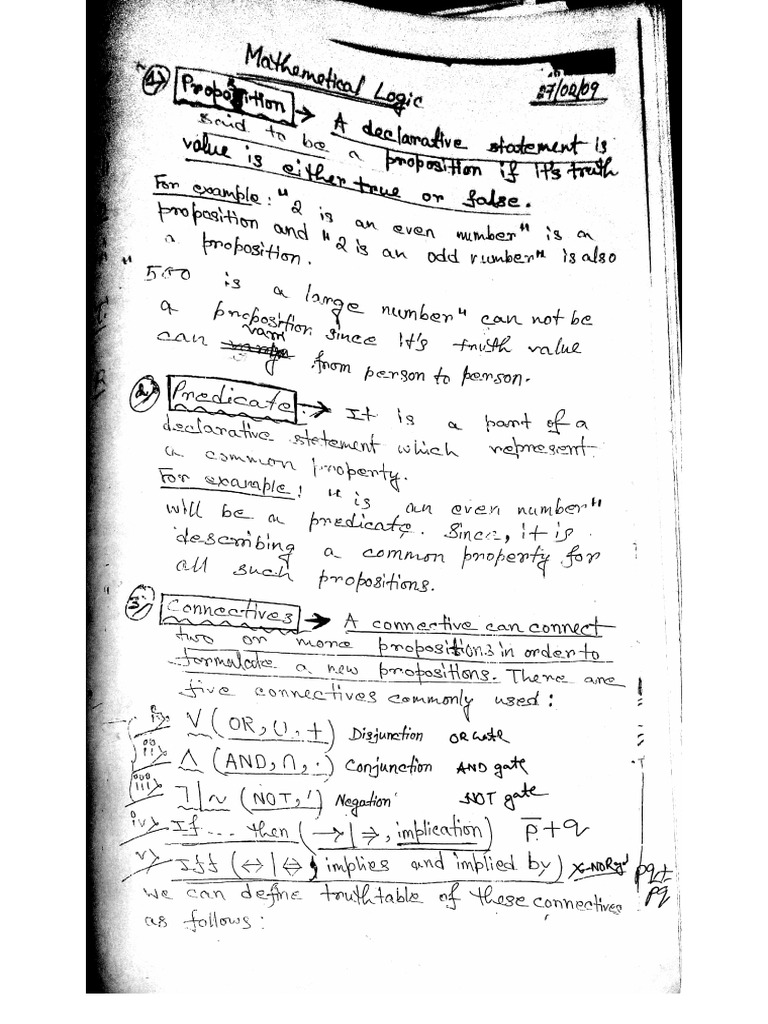 Mathemetical Logic
27/02/09
1) Proposition → A declarative statement is
said to be a proposition if it's truth
value is either true or false.
For example: "2 is an even number" is a
proposition and "2 is an odd number" is also
a proposition.
"500 is a large number" can not be
a proposition since it's truth value
can vary from person to person.
2) Predicate → It is a part of a
declarative statement which represent
a common property.
For example: "is an even number"
will be a predicate. Since, it is
describing a common property for
all such propositions.
3) Connectives → A connective can connect
two or more propositions in order to
formulate a new propositions. There are
five connectives commonly used:
i) ∨ (OR, ∪, +) Disjunction OR Gate
ii) ∧ (AND, ∩, .) Conjunction AND gate
iii) ⏋|~ (NOT, ') Negation NOT gate
iv) If.... then (→|⇒, implication) p̅+q
v) Iff (↔|⇔, implies and implied by) X-NOR
we can define truthtable of these connectives
as follows: